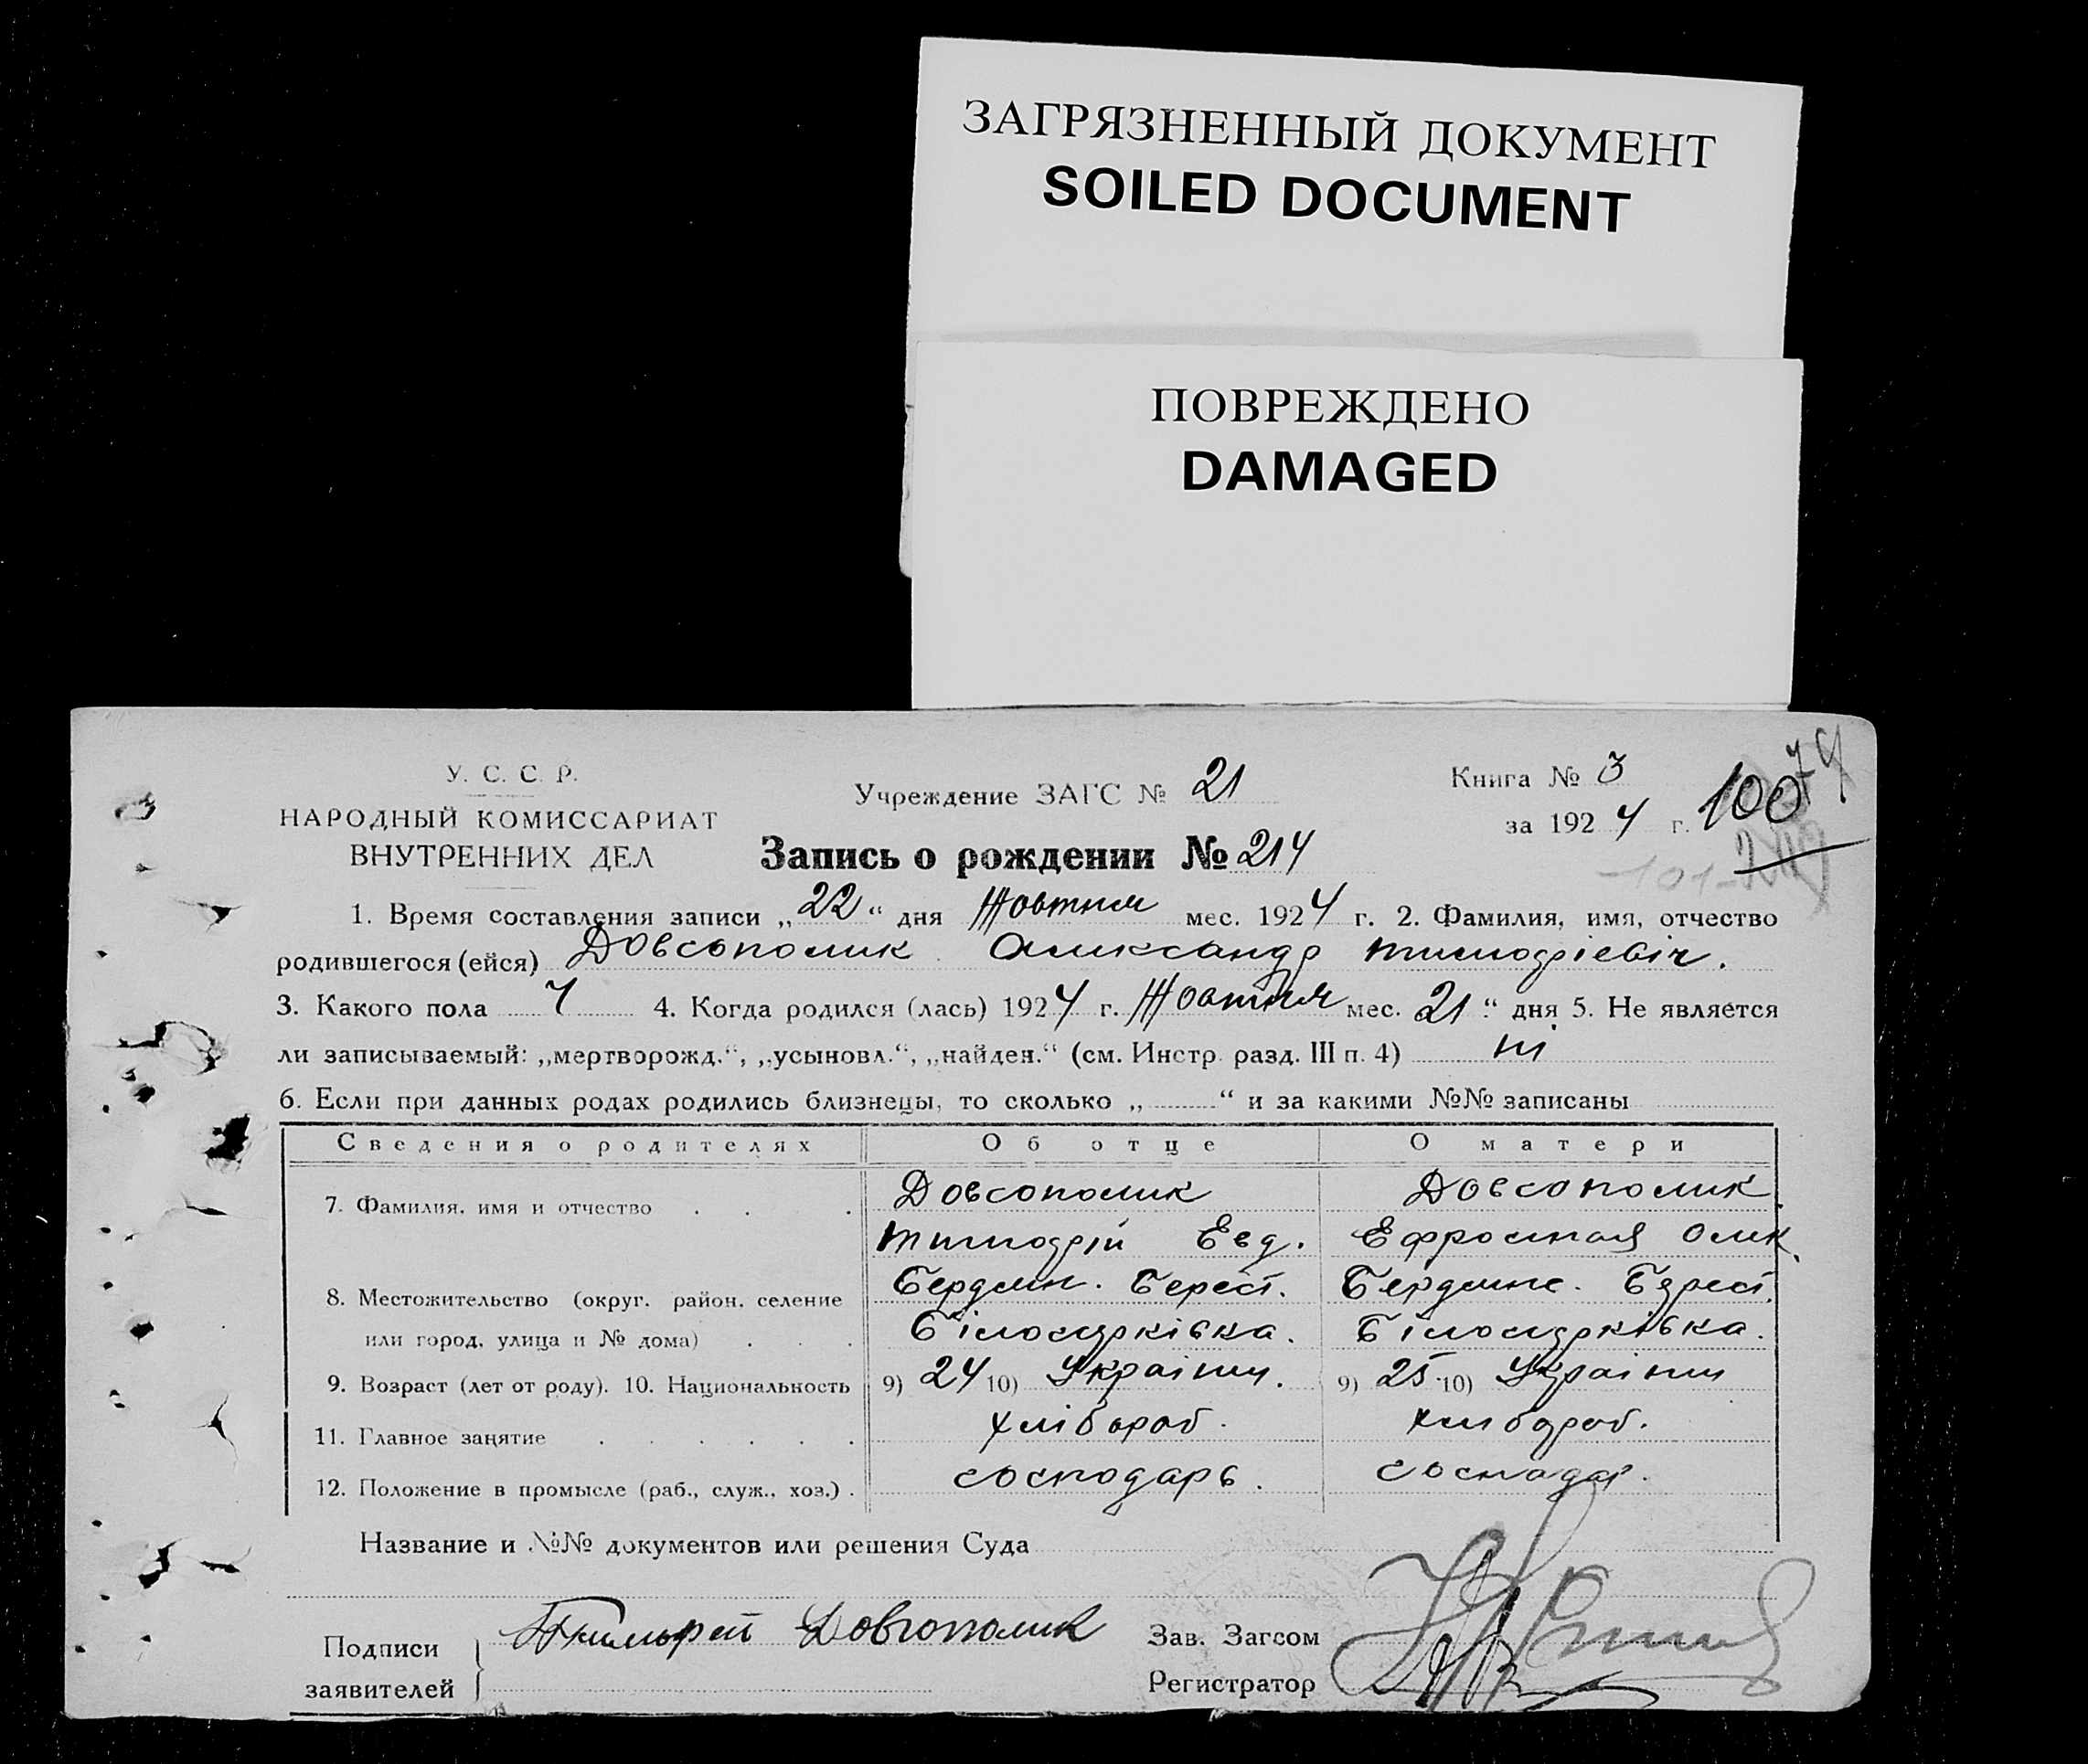 ЗАГРЯЗНЕННЫЙ ДОКУМЕНТ
SOILED DOCUMENT
ПОВРЕЖДЕНО
DAMAGED
У. С. С. Р.
НАРОДНЫЙ КОМИССАРИАТ
ВНУТРЕННИХ ДЕЛ
Учреждение ЗАГС № 21
Книга № 3
за 1924 г. 100
Запись о рождении № 214
1. Время составления записи „22“ дня Жовтня мес. 1924 г. 2. Фамилия, имя, отчество
родившегося (ейся) Довгополик Олександр Тимофієвіч.
3. Какого пола Ч 4. Когда родился (лась) 1924 г. Жовтня мес. 21“ дня 5. Не является
ли записываемый: „мертворожд.“, „усыновл.“, „найден.“ (см. Инстр. разд. III п. 4) ні
6. Если при данных родах родились близнецы, то сколько „ “ и за какими №№ записаны
Сведения о родителях Об отце О матери
7. Фамилия, имя и отчество Довгополик Довгополик
Тимофій Евд. Ефросиная Олик.
8. Местожительство (округ. район. селение Бердянс. Берест. Бердянс. Берест.
или город, улица и № дома) Білоцерківка. Білоцерківка.
9. Возраст (лет от роду). 10. Национальность 9) 24 10) України. 9) 25 10) України
11. Главное занятие хлібороб. хлибороб.
12. Положение в промысле (раб., служ., хоз.) господарь. господар.
Название и №№ документов или решения Суда
Подписи
заявителей
Тимофей Довгополик
Зав. Загсом
Регистратор